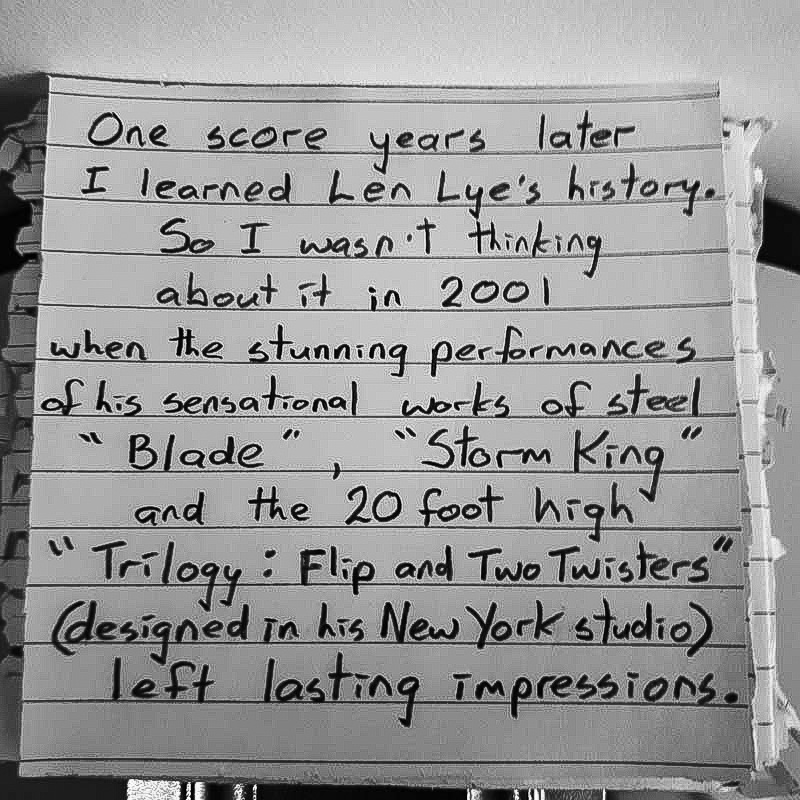 One score years later
I learned Len Lye's history.
So I wasn't thinking
about it in 2001
when the stunning performances
of his sensational works of steel
"Blade", "Storm King"
and the 20 foot high
"Trilogy: Flip and Two Twisters"
(designed in his New York studio)
left lasting impressions.